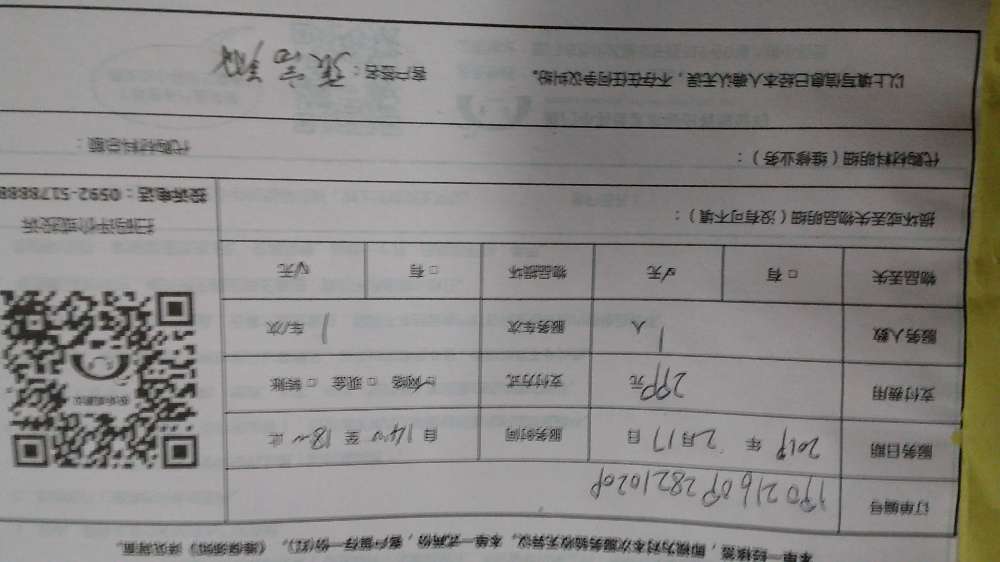 本单一经核签，即视为对本次服务验收无异议，本单一式两份，客户留存一份(红)，《维保须知》详见背面。
订单编号 1902160928210209
服务日期 2019 年 2 月 17 日 服务时间 自 14:00 至 18:00 止
支付费用 299 元 支付方式 ☑网络 □现金 □转账
服务人数 1 人 服务车次 1 车/次
物品丢失 □有 ☑无 物品损坏 □有 ☑无
损坏或丢失物品明细（没有可不填）：
扫码评价或投诉
投诉电话：0592-5178888
代购材料明细（维修业务）： 代购材料总额：
以上填写信息已经本人确认无误，不存在任何争议纠纷。 客户签名：